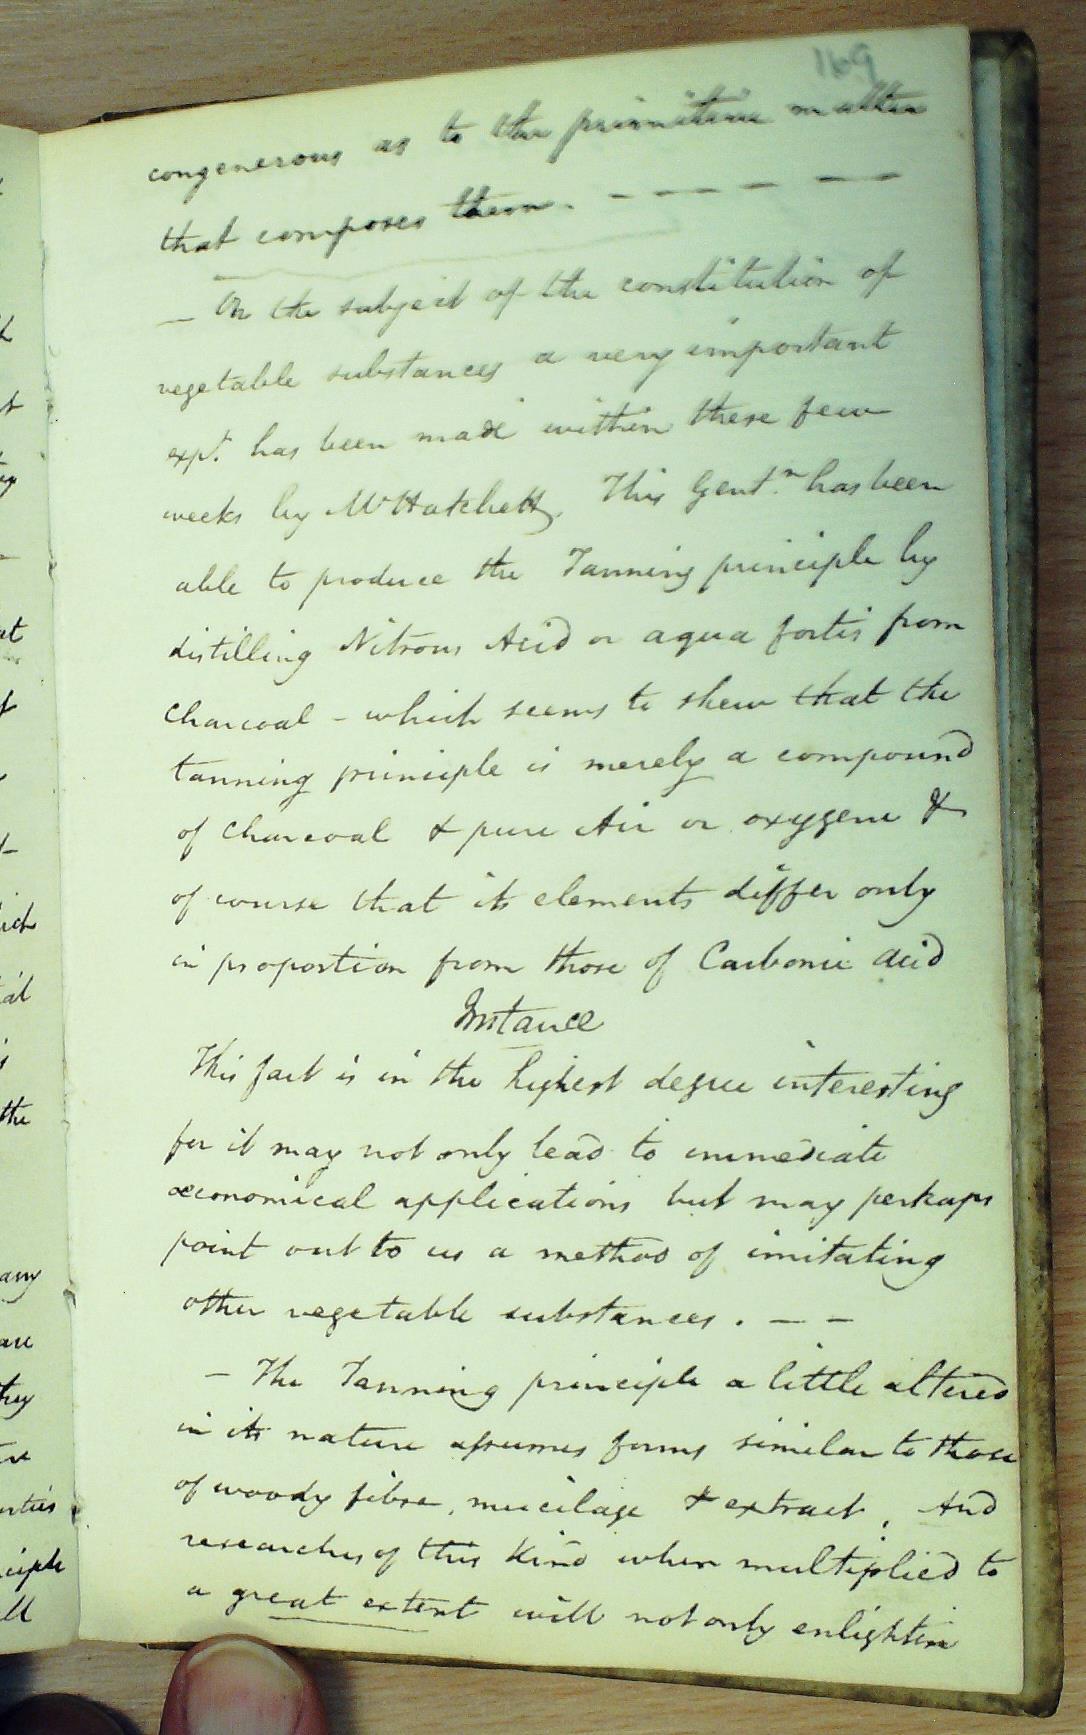 169
congenerous as to the primitive matter
that composes them. — — — — — —
— On the subject of the constitution of
vegetable substances a very important
expt. has been made within these few
weeks by Mr Hatchett. This Gentn. has been
able to produce the Tanning principle by
distilling Nitrous Acid or aqua fortis from
Charcoal – which seems to shew that the
tanning principle is merely a compound
of Charcoal & pure Air or oxygene &
of course that its elements differ only
in proportion from those of Carbonic Acid
Instance
This fact is in the highest degree interesting
for it may not only lead to immediate
œconomical applications but may perhaps
point out to us a method of imitating
other vegetable substances. — —
— The Tanning principle a little altered
in its nature assumes forms similar to those
of woody fibre, mucilage & extract, And
researches of this kind when multiplied to
a great extent will not only enlighten
the
any
are
they
ciple